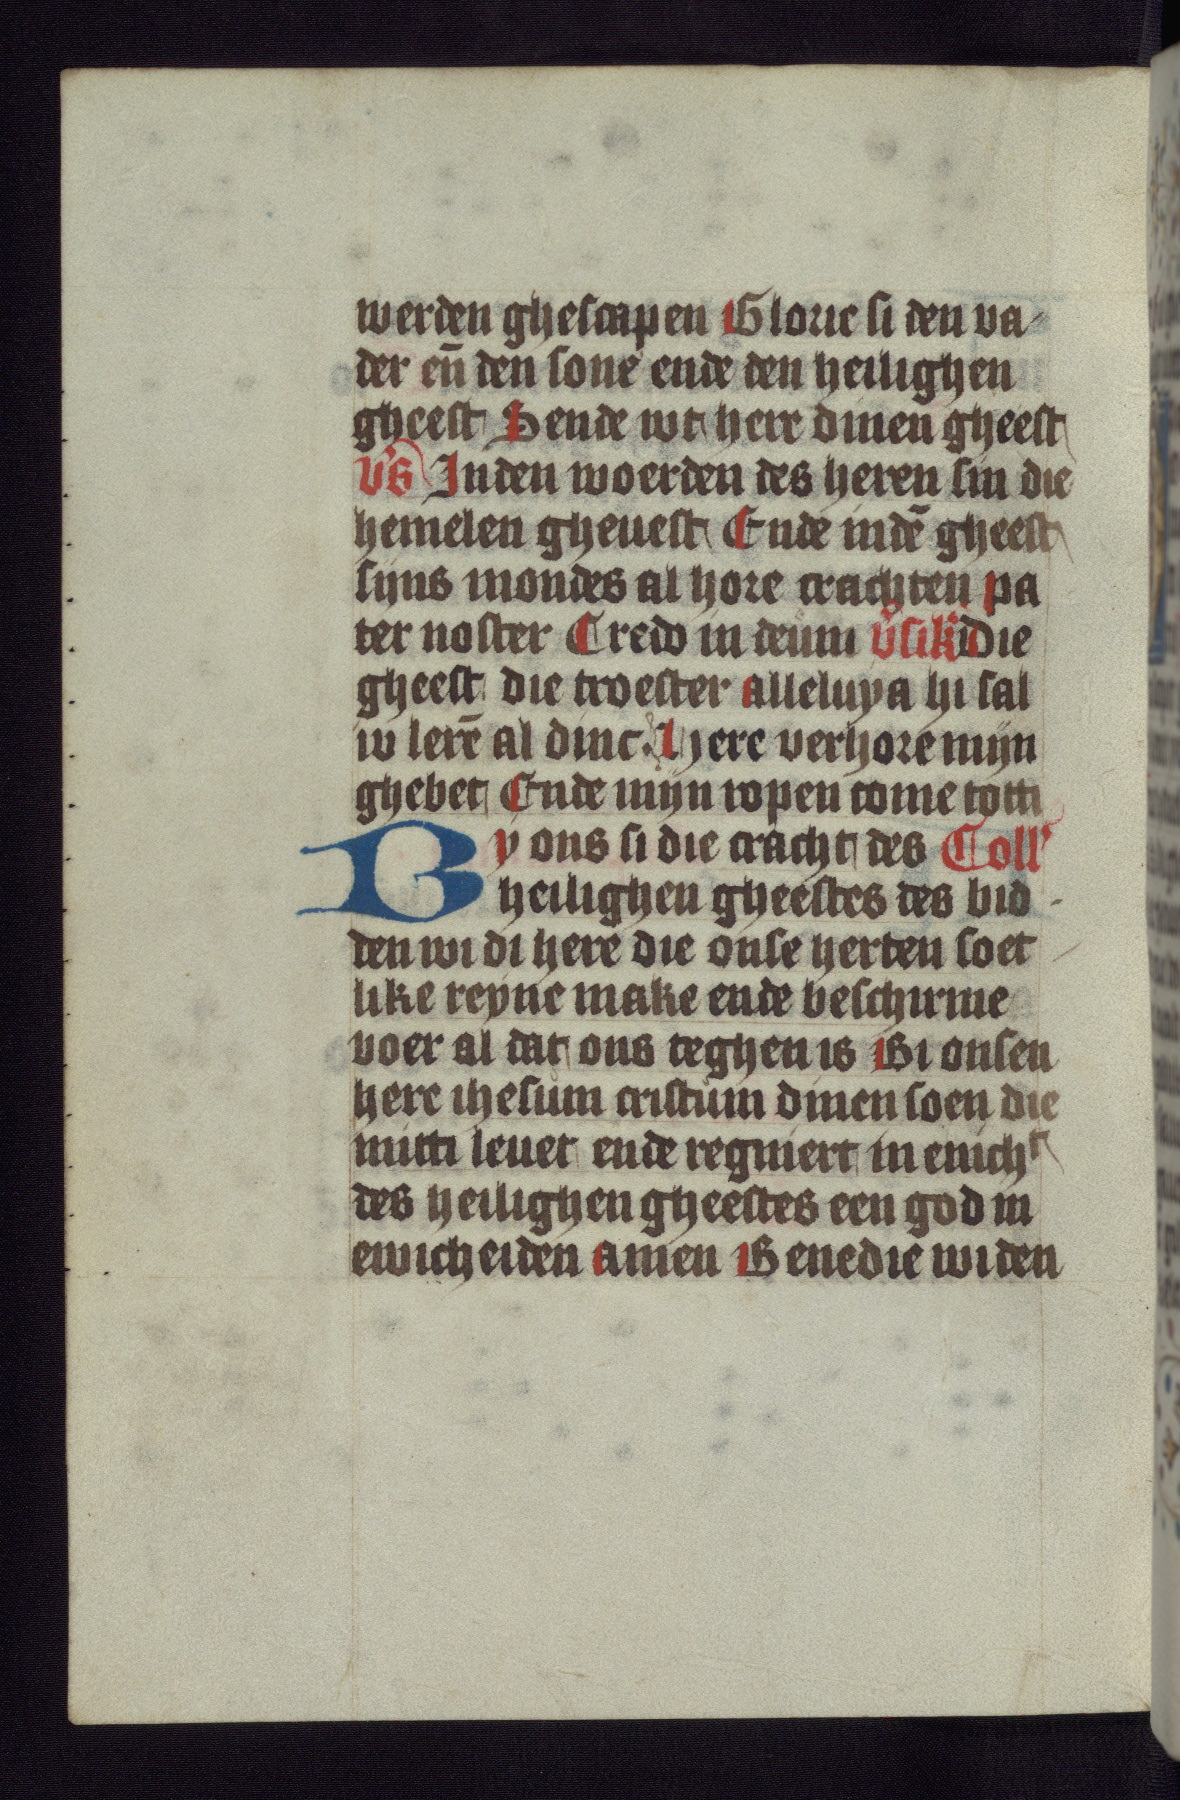 werden ghescapen Glorie si den va-
der eñ den sone ende den heilighen
gheest Sende wt here dinen gheest
v͛s In den woerden des heren sin die
hemelen gheuest Ende in dē gheest
sijns mondes al hore crachten pa
ter noster Credo in deum v͛sikl Die
gheest die troester alleluya hi sal
iv lerē al dinc. here verhore mijn
ghebet Ende mijn ropen come totti
By ons si die cracht des Coll'
heilighen gheestes des bid-
den wi di here die onse herten soet
like reyne make ende beschirme
voer al dat ons teghen is Bi onsen
here ihesum cristum dinen soen die
mitti leuet ende regniert in enichᵗ
des heilighen gheestes een god in
ewicheiden amen Benedie wi den